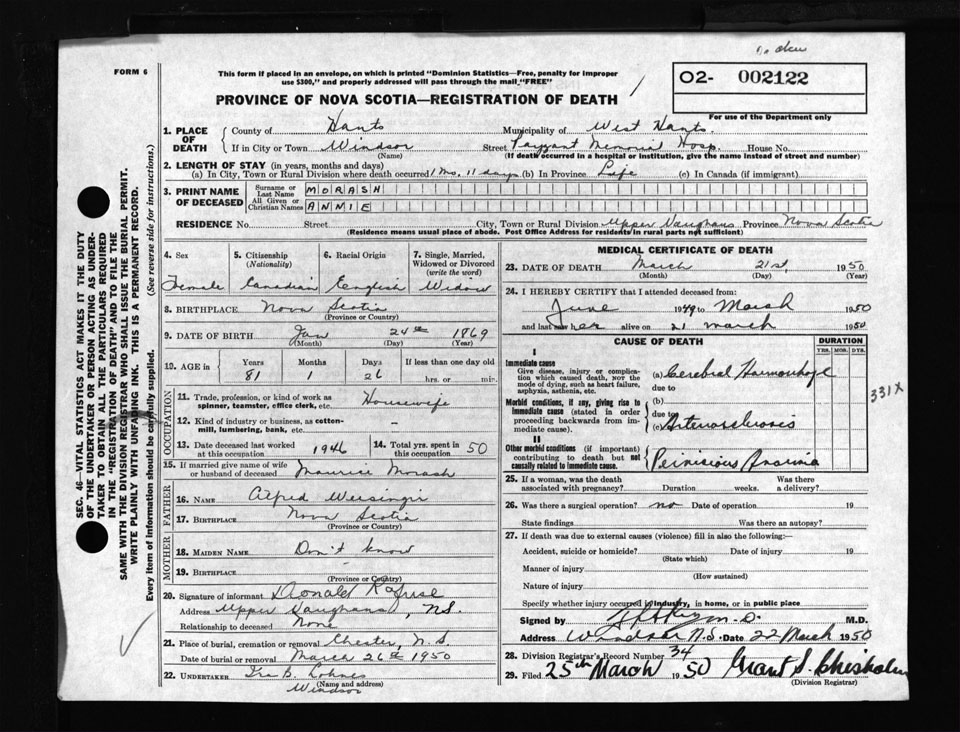 FORM 6
This form if placed in an envelope, on which is printed "Dominion Statistics—Free, penalty for improper
use $300," and properly addressed will pass through the mail "FREE"
PROVINCE OF NOVA SCOTIA—REGISTRATION OF DEATH
O2- 002122
For use of the Department only
SEC. 46—VITAL STATISTICS ACT MAKES IT THE DUTY
OF THE UNDERTAKER OR PERSON ACTING AS UNDER-
TAKER TO OBTAIN ALL THE PARTICULARS REQUIRED
IN THE "REGISTRATION OF DEATH" AND TO FILE THE
SAME WITH THE DIVISION REGISTRAR WHO SHALL ISSUE THE BURIAL PERMIT.
WRITE PLAINLY WITH UNFADING INK. THIS IS A PERMANENT RECORD.
Every item of information should be carefully supplied. (See reverse side for instructions.)
1. PLACE OF DEATH
County of Hants Municipality of West Hants.
If in City or Town Windsor Street Payzant Memorial Hosp. House No.
(Name) (If death occurred in a hospital or institution, give the name instead of street and number)
2. LENGTH OF STAY (in years, months and days)
(a) In City, Town or Rural Division where death occurred 1 Mo. 11 days (b) In Province Life (c) In Canada (if immigrant)
3. PRINT NAME OF DECEASED
Surname or Last Name MORASH
All Given or Christian Names ANNIE
RESIDENCE No. Street City, Town or Rural Division Upper Vaughans Province Nova Scotia
(Residence means usual place of abode. Post Office Address for residents in rural parts not sufficient)
4. Sex
Female
5. Citizenship (Nationality)
Canadian
6. Racial Origin
English
7. Single, Married, Widowed or Divorced (write the word)
Widow
8. BIRTHPLACE Nova Scotia
(Province or Country)
9. DATE OF BIRTH Jan 24th 1869
(Month) (Day) (Year)
10. AGE in Years Months Days If less than one day old
81 1 26 hrs. or min.
OCCUPATION
11. Trade, profession, or kind of work as spinner, teamster, office clerk, etc. Housewife
12. Kind of industry or business, as cotton-mill, lumbering, bank, etc. -
13. Date deceased last worked at this occupation 1946
14. Total yrs. spent in this occupation 50
15. If married give name of wife or husband of deceased Maurice Morash
FATHER
16. NAME Alfred
17. BIRTHPLACE Nova Scotia
(Province or Country)
MOTHER
18. MAIDEN NAME Don't know
19. BIRTHPLACE -
(Province or Country)
20. Signature of informant Donald Rafuse
Address Upper Vaughans, N.S.
Relationship to deceased None
21. Place of burial, cremation or removal Chester, N.S
Date of burial or removal March 26th 1950
22. UNDERTAKER Ira B. Lohnes
(Name and address)
Windsor
MEDICAL CERTIFICATE OF DEATH
23. DATE OF DEATH March 21st, 1950
(Month) (Day) (Year)
24. I HEREBY CERTIFY that I attended deceased from:
June 1949 to March 1950
and last saw her alive on 21 march 1950
CAUSE OF DEATH
DURATION
YRS. MOS. DYS.
I
Immediate cause
Give disease, injury or complication which caused death, not the mode of dying, such as heart failure, asphyxia, asthenia, etc.
(a) Cerebral Haemorrhage
due to
Morbid conditions, if any, giving rise to immediate cause (stated in order proceeding backwards from immediate cause).
(b)
due to
(c) Arteriosclerosis
331X
II
Other morbid conditions (if important) contributing to death but not causally related to immediate cause.
Pernicious Anaemia
25. If a woman, was the death associated with pregnancy? Duration weeks. Was there a delivery?
26. Was there a surgical operation? no Date of operation 19
State findings Was there an autopsy?
27. If death was due to external causes (violence) fill in also the following:
Accident, suicide or homicide? Date of injury 19
(State which)
Manner of injury
(How sustained)
Nature of injury
Specify whether injury occurred in industry, in home, or in public place
Signed by M.D. M.D.
Address Windsor N.S. Date 22 March 1950
28. Division Registrar's Record Number 34
29. Filed 25th March 1950 Grant S. Chisholm
(Division Registrar)